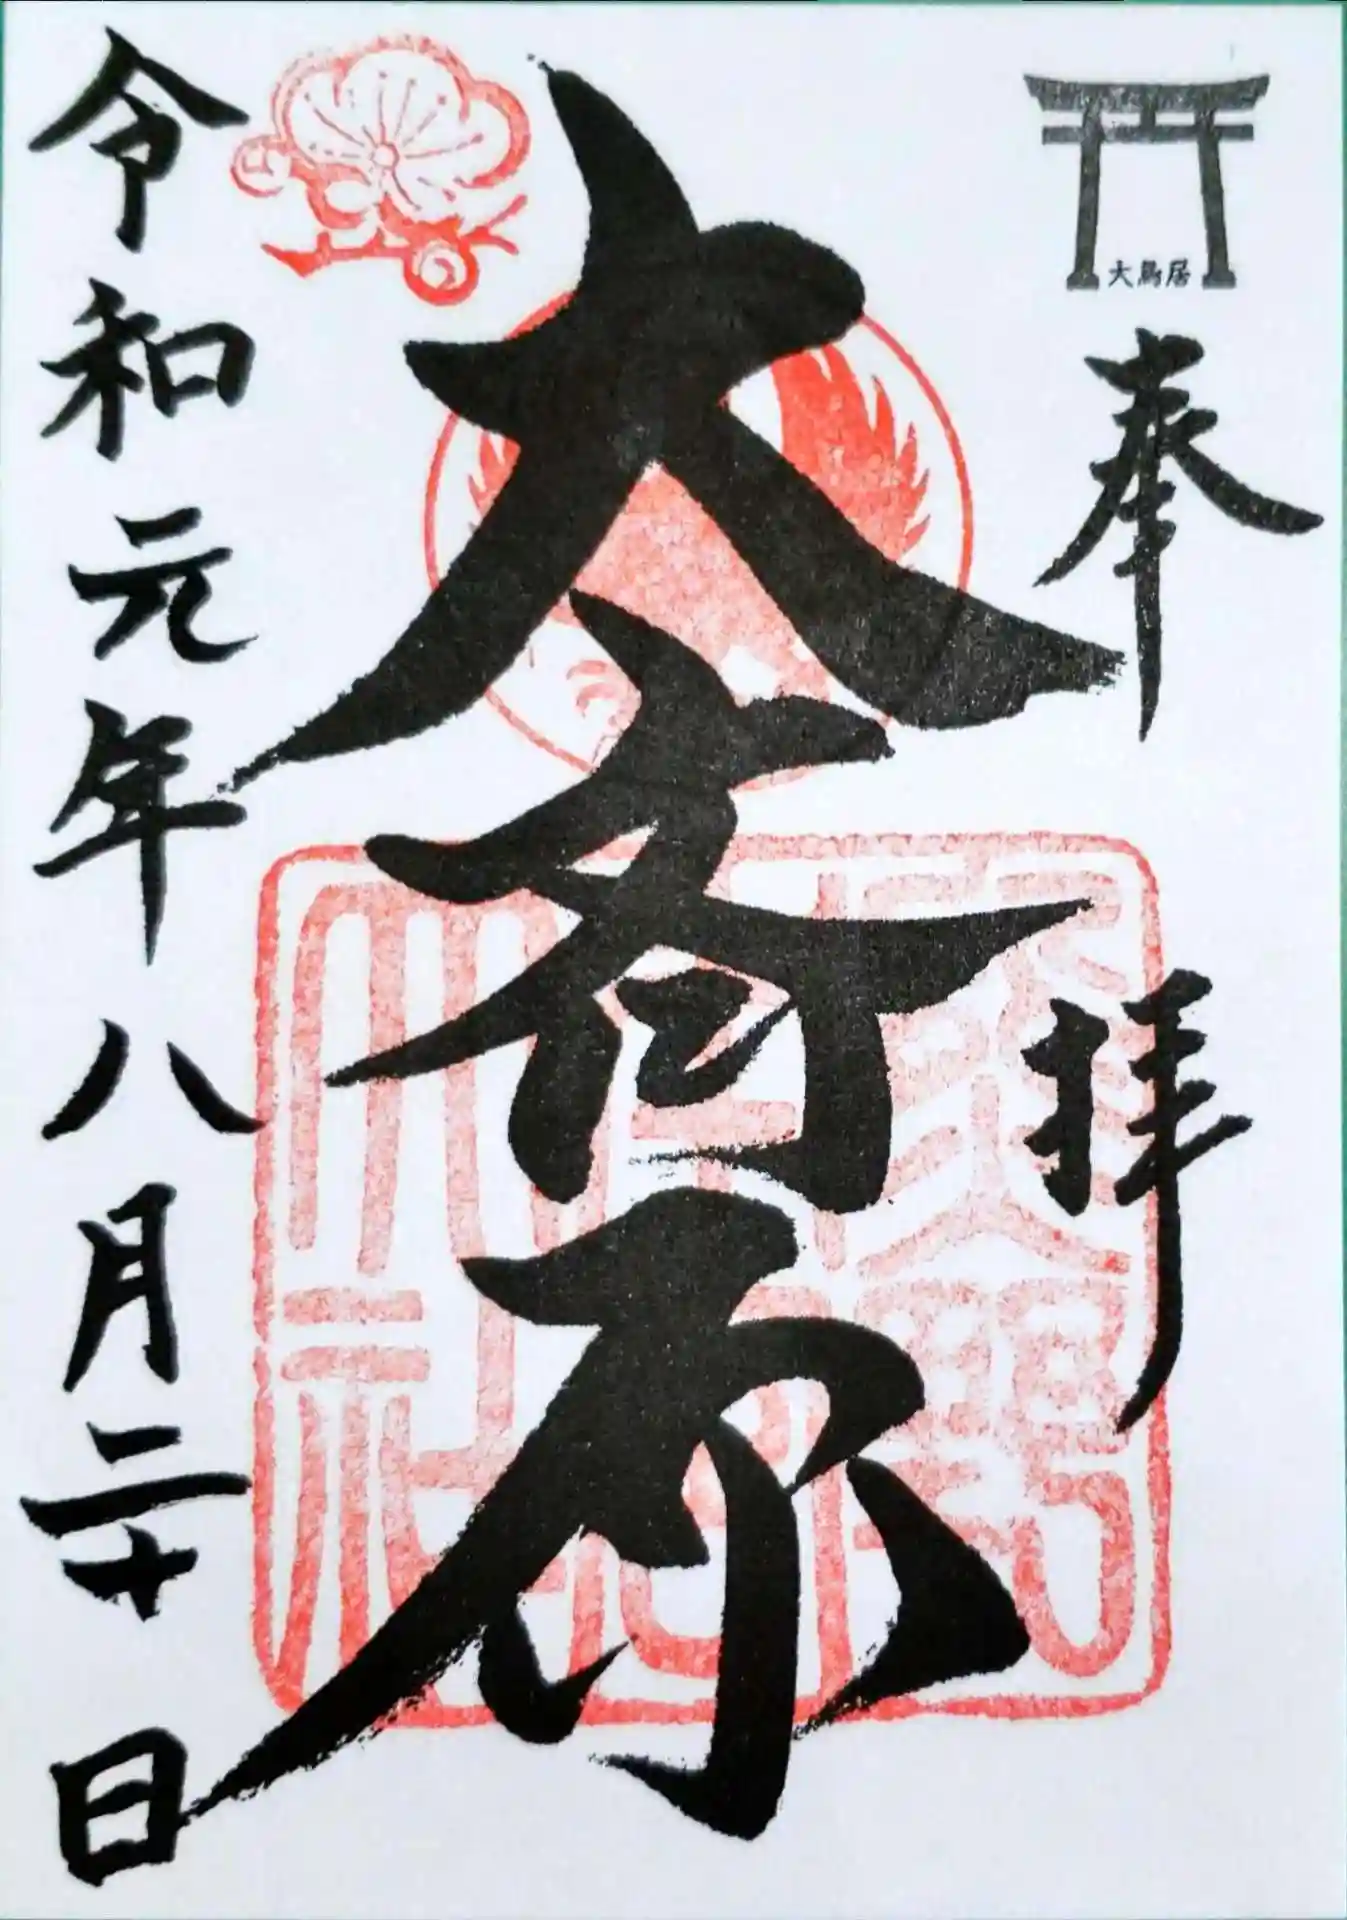 大鳥居
奉拝
大斎原
令和元年八月二十日